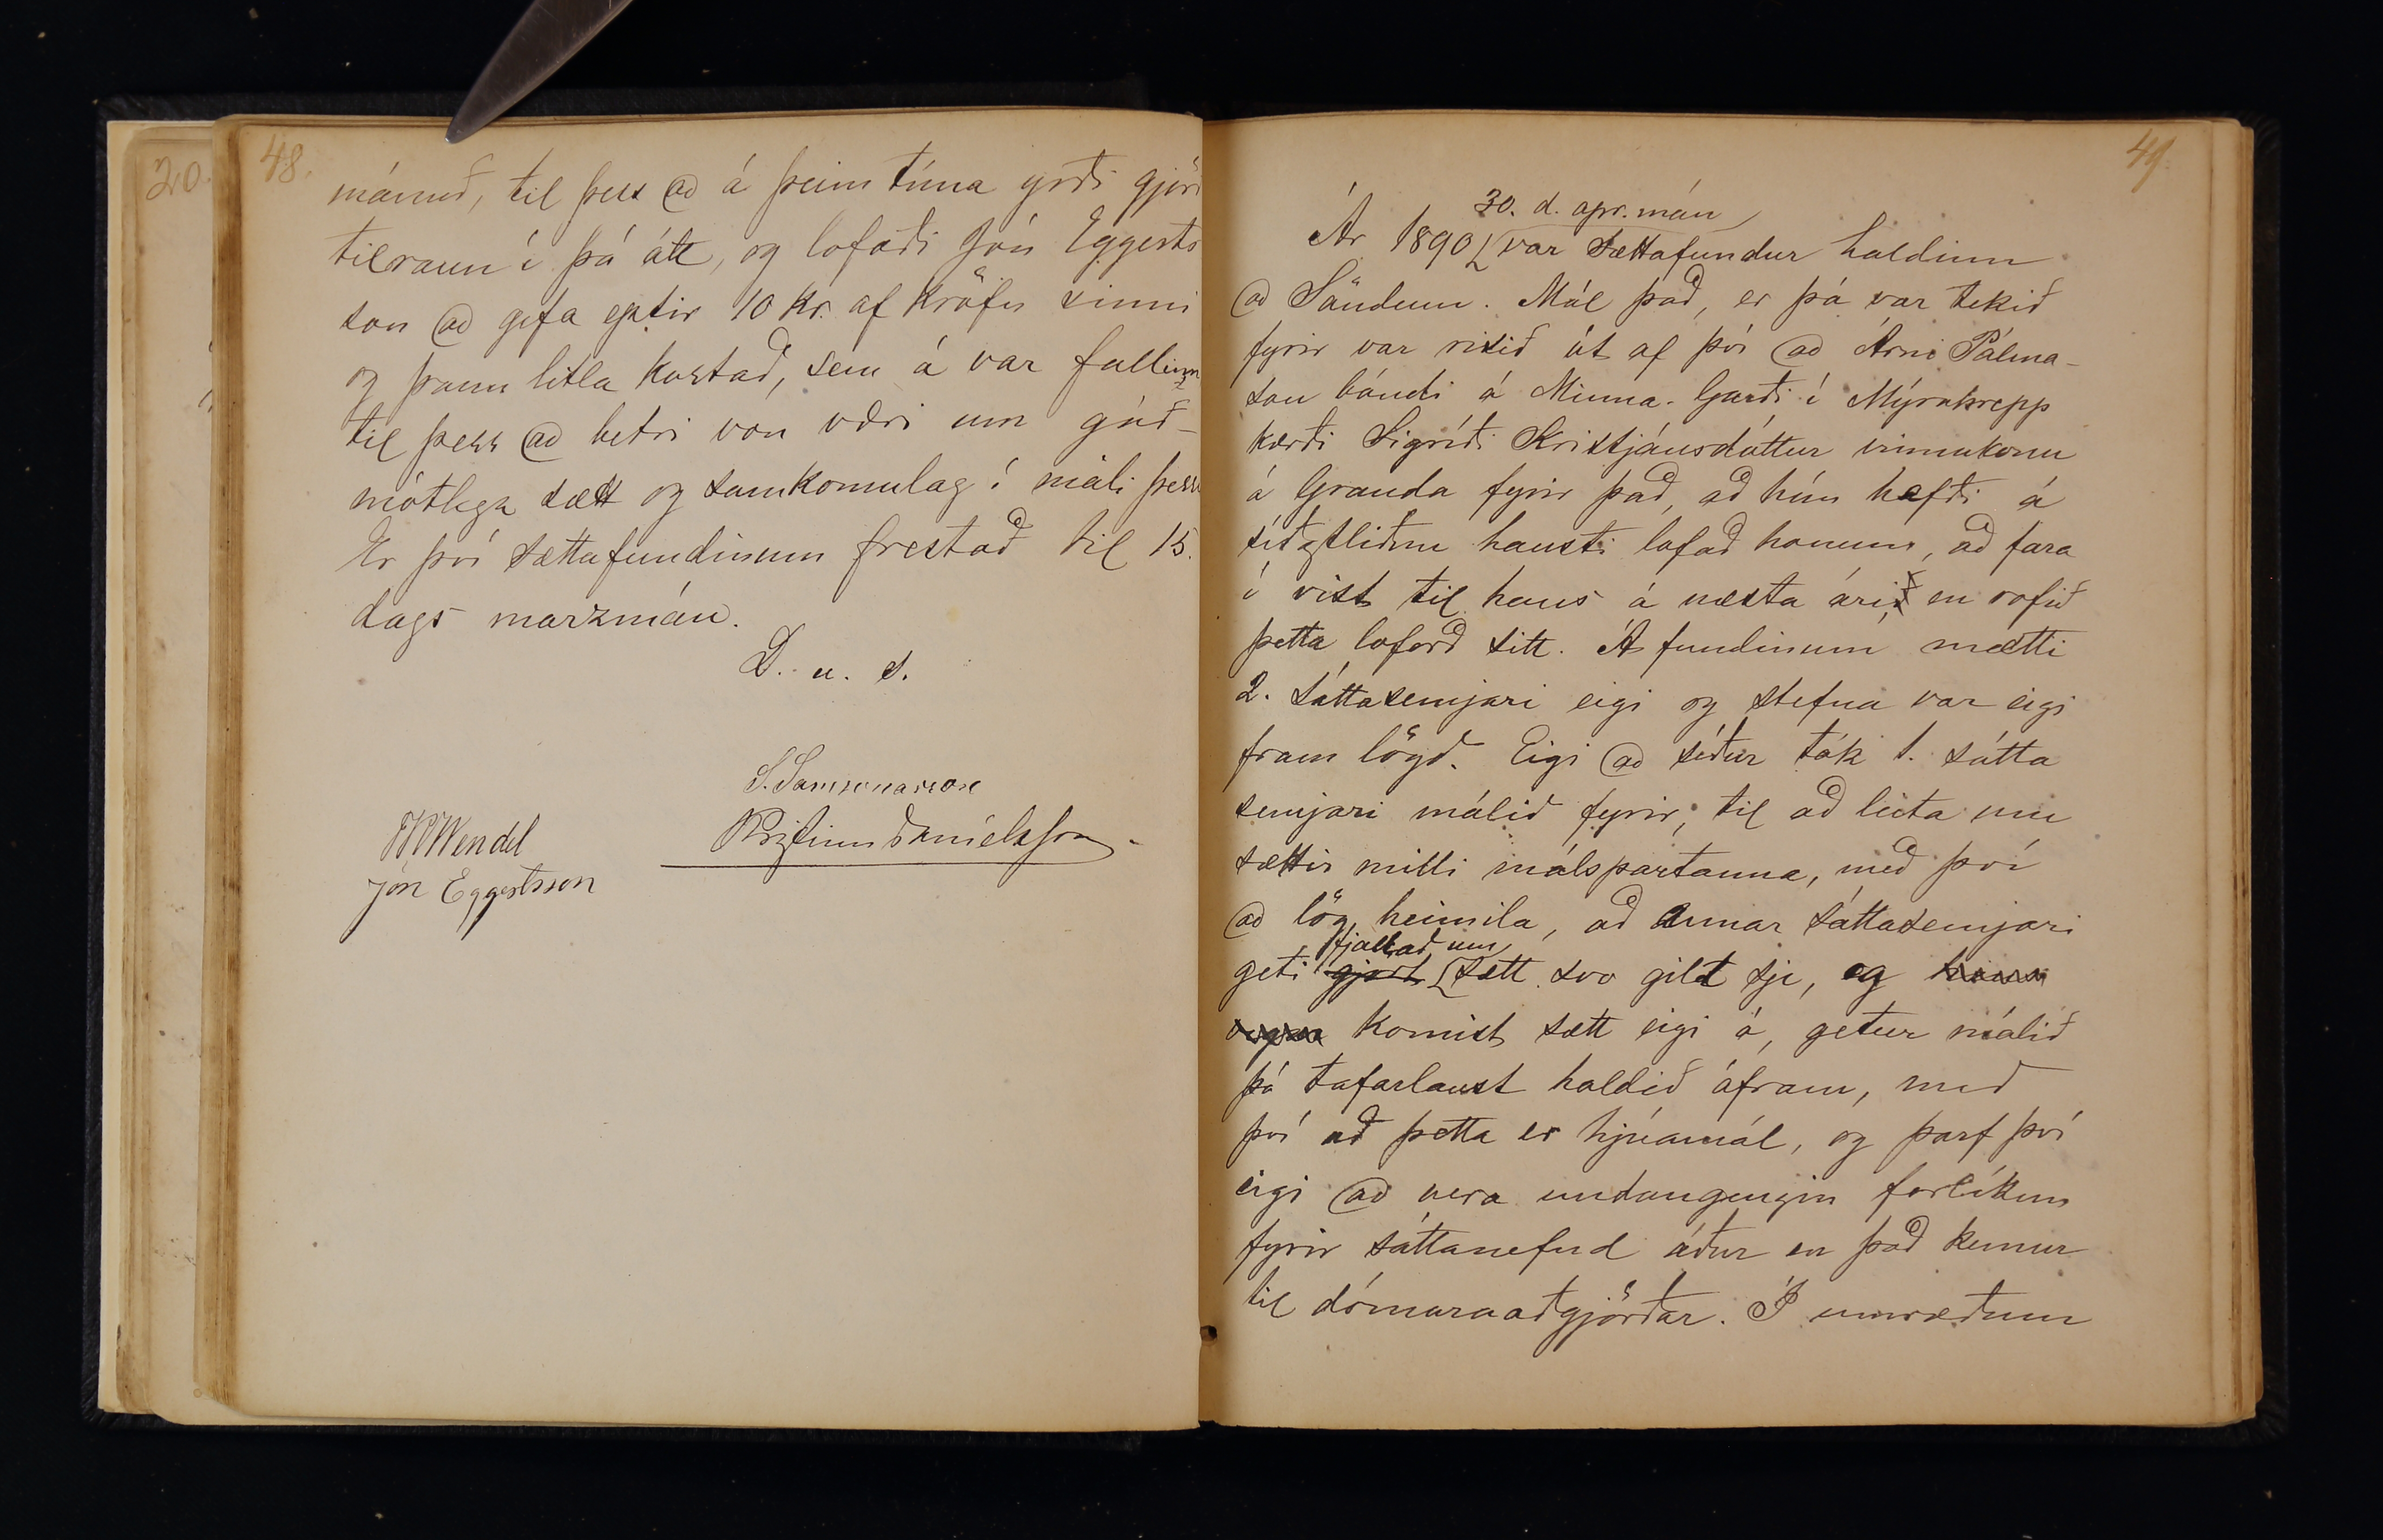 20.
48.
mánuð, til þess að á þeim tíma yrði gjör
tilraun í þá átt, og lofaði Jón Eggerts
son að gefa eptir 10 kr. af kröfu sinni
og þann litla kostað, sem á var fallinn
til þess að betri von væri um góð-
mótlega sætt og samkomulag í máli þessu
Er því sættafundinum frestað til 15.
dags marzmán.
D. u. s.
S. Samsonarson
Kristinn Daníelsson
Wendel
Jón Eggertsson
49.
30. d. apr. mán
Ár 1890 var sættafundur haldinn
að Söndum. Mál það, er þá var tekið
fyrir var risið út af því að Árni Pálma-
son bóndi á Minna-Garði í Mýrahrepp
kærði Sigríði Kristjánsdóttur vinnukonu
á Granda fyrir það, að hún hefði á
síðstliðnu hausti lofað honum, að fara
í vist til hans á næsta ári, en rofið
þetta loforð sitt. Á fundinum mætti
2. sáttasemjari eigi og stefna var eigi
fram lögð. Eigi að síður tók 1. sátta
semjari málið fyrir, til að leita um
sættir milli málspartanna, með því
að lög heimila, að annar sáttasemjari
fjallað um
geti gjört sætt svo gild sje, og
komist sætt eigi á, getur málið
þá tafarlaust haldið áfram, með
því að þetta er hjúamál, og þarf því
eigi að vera undangengin forlíkun
fyrir sáttanefnd áður en það kemur
til dómaraaðgjörðar. Í umræðum